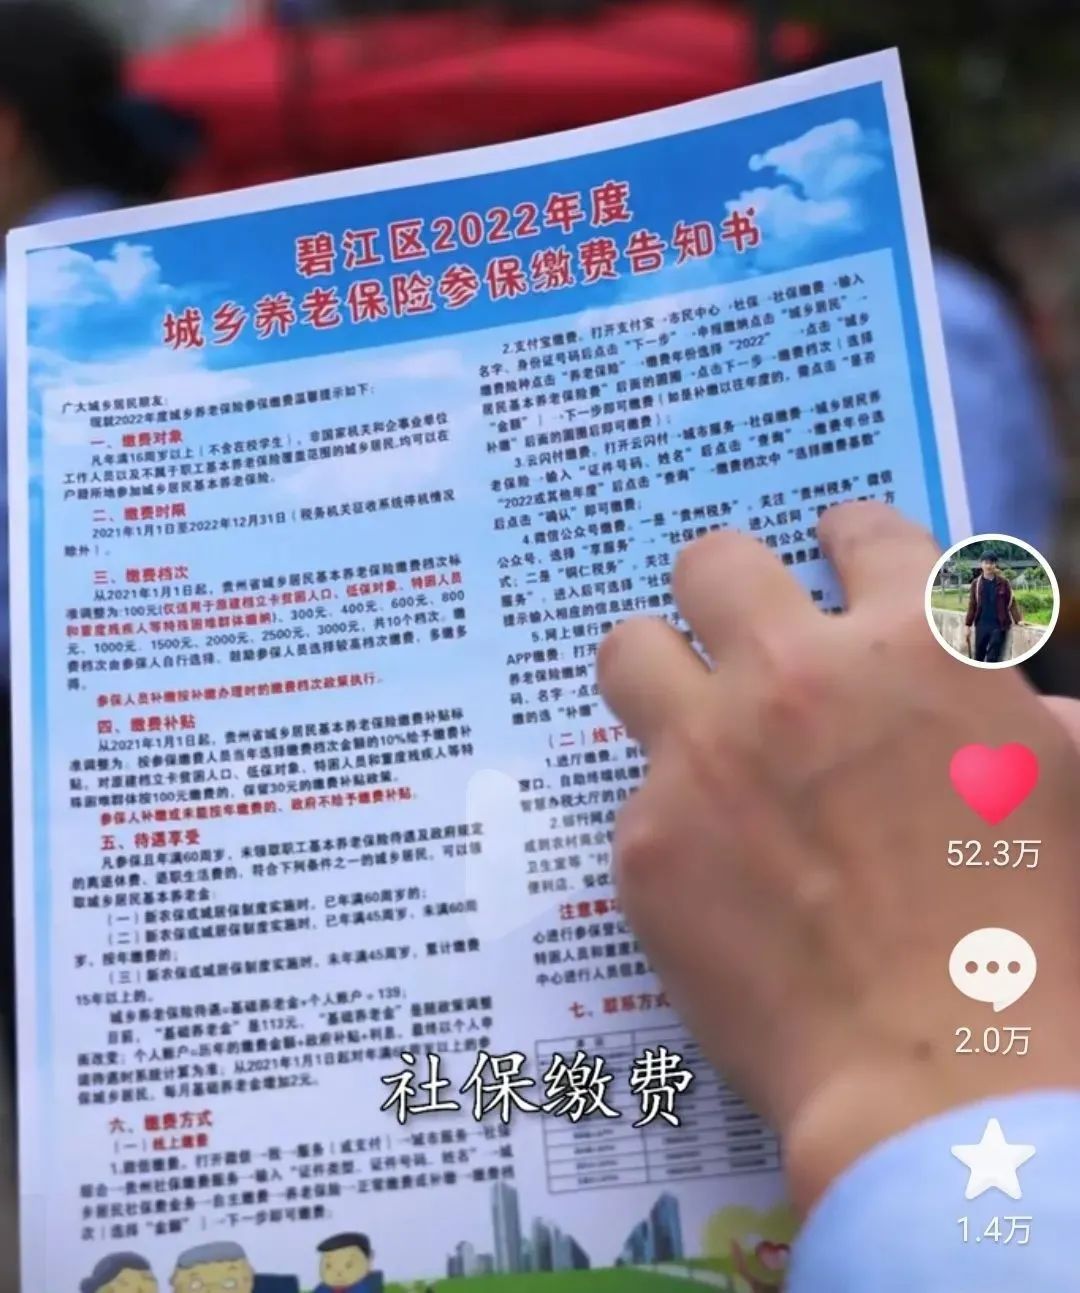 碧江区2022年度
城乡养老保险参保缴费告知书
广大城乡居民朋友：
现就2022年度城乡养老保险参保缴费温馨提示如下：
一、缴费对象
凡年满16周岁以上（不含在校学生），非国家机关和企事业单位
工作人员以及不属于职工基本养老保险覆盖范围的城乡居民，均可以在
户籍所地参加城乡居民基本养老保险。
二、缴费时限
2021年1月1日至2022年12月31日（税务机关征收系统停机情况
除外）。
三、缴费档次
从2021年1月1日起，贵州省城乡居民基本养老保险缴费档次标
准调整为:100元(仅适用于原建档立卡贫困人口、低保对象、特困人员
和重度残疾人等特殊困难群体缴纳)、300元、400元、600元、800
元、1000元、1500元、2000元、2500元、3000元，共10个档次，缴
费档次由参保人自行选择，鼓励参保人员选择较高档次缴费，多缴多
得。
参保人员补缴按补缴办理时的缴费档次政策执行。
四、缴费补贴
从2021年1月1日起，贵州省城乡居民基本养老保险缴费补贴标
准调整为：按参保缴费人员当年选择缴费档次金额的10%给予缴费补
贴，对原建档立卡贫困人口、低保对象、特困人员和重度残疾人等特
殊困难群体按100元缴费的，保留30元的缴费补贴政策。
参保人补缴或未能按年缴费的、政府不给予缴费补贴。
五、待遇享受
凡参保且年满60周岁，未领取职工基本养老保险待遇及政府规定
的离退休费、退职生活费的，符合下列条件之一的城乡居民，可以领
取城乡居民基本养老金：
（一）新农保或城居保制度实施时，已年满60周岁的；
（二）新农保或城居保制度实施时，已年满45周岁，未满60周
岁，按年缴费的；
（三）新农保或城居保制度实施时，未年满45周岁，累计缴费
15年以上的。
城乡养老保险待遇=基础养老金+个人账户÷139；
目前，“基础养老金”是113元，“基础养老金”是随政策调整
而改变；个人账户=历年的缴费金额+政府补贴+利息，最终以个人申
请待遇时系统计算为准；从2021年1月1日起对年满
周岁以上的参
保城乡居民，每月基础养老金增加2元。
六、缴费方式
（一）线上缴费
1.微信缴费，打开微信→我→服务（或支付）→城市服务→社保
综合→贵州社保缴费服务→输入“证件类型、证件号码、姓名”→城
乡居民社保费业务→自主缴费→养老保险→正常缴费或补缴→缴费档
次（选择“金额”）→下一步即可缴费；
2.支付宝缴费，打开支付宝→市民中心→社保→社保缴费→输入
名字、身份证号码后点击“下一步”→申报缴纳点击“城乡居民”→
缴费险种点击“养老保险”→缴费年份选择“2022”→点击“城乡
居民基本养老保险费”后面的圆圈→点击下一步→缴费档次（选择
“金额”）→下一步即可缴费（如是补缴以往年度的，需点击“是否
补缴”后面的圆圈后即可缴费）；
3.云闪付缴费，打开云闪付→城市服务→社保缴费→城乡居民养
老保险→输入“证件号码、姓名”后点击“查询”→缴费年份选
“2022或其他年度”后点击“查询”→缴费档次中“选择缴费基数”
后点击“确认”即可缴费；
4.微信公众号缴费，一是“贵州税务”，关注“贵州税务”微信
公众号，选择“享服务”→“社保缴费”，进入后同
方
式；二是“铜仁税务”，关注
微信公众号
服务”，进入后可选择“社保
缴费
提示输入相应的信息进行缴费
5.网上银行缴
APP缴费：打开
养老保险缴纳”
码、名字→点击
缴的选“补缴”
（二）线下
1.进厅缴费，到
窗口、自助终端机缴
智慧办税大厅的自
2.银行网点
或到农村商业
卫生室等“村
便利店、餐饮
注意事项
心进行参保登记
特困人员和重度
中心进行人员信息
七、联系方式
社保缴费
52.3万
2.0万
1.4万